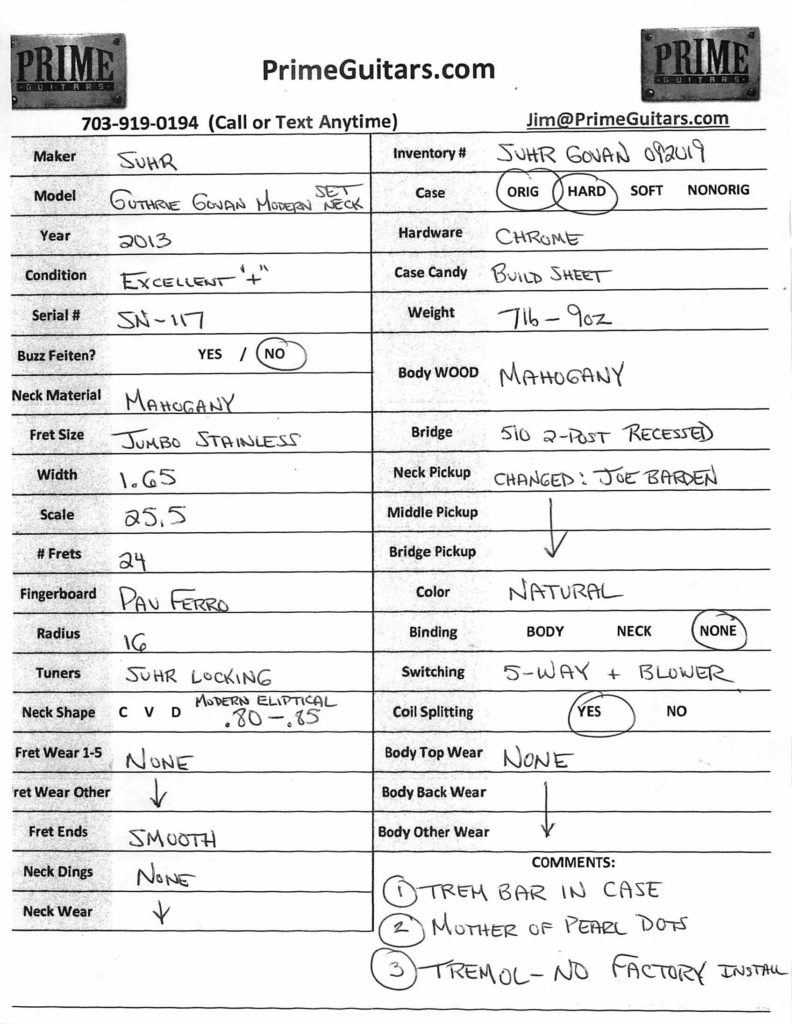 PRIME
GUITARS
PrimeGuitars.com
PRIME
GUITARS
703-919-0194 (Call or Text Anytime)
Jim@PrimeGuitars.com
Maker SUHR
Model GUTHRIE GOVAN MODERN SET NECK
Year 2013
Condition EXCELLENT "+"
Serial # SN-117
Buzz Feiten? YES / NO
Neck Material MAHOGANY
Fret Size JUMBO STAINLESS
Width 1.65
Scale 25.5
# Frets 24
Fingerboard PAU FERRO
Radius 16
Tuners SUHR LOCKING
Neck Shape C V D MODERN ELIPTICAL .80-.85
Fret Wear 1-5 NONE
ret Wear Other ↓
Fret Ends SMOOTH
Neck Dings NONE
Neck Wear ↓
Inventory # SUHR GOVAN 092019
Case ORIG HARD SOFT NONORIG
Hardware CHROME
Case Candy BUILD SHEET
Weight 7lb-9oz
Body WOOD MAHOGANY
Bridge 510 2-POST RECESSED
Neck Pickup CHANGED: JOE BARDEN
Middle Pickup ↓
Bridge Pickup
Color NATURAL
Binding BODY NECK NONE
Switching 5-WAY + BLOWER
Coil Splitting YES NO
Body Top Wear NONE
Body Back Wear ↓
Body Other Wear
COMMENTS:
1 TREM BAR IN CASE
2 MOTHER OF PEARL DOTS
3 TREMOL-NO FACTORY INSTALL